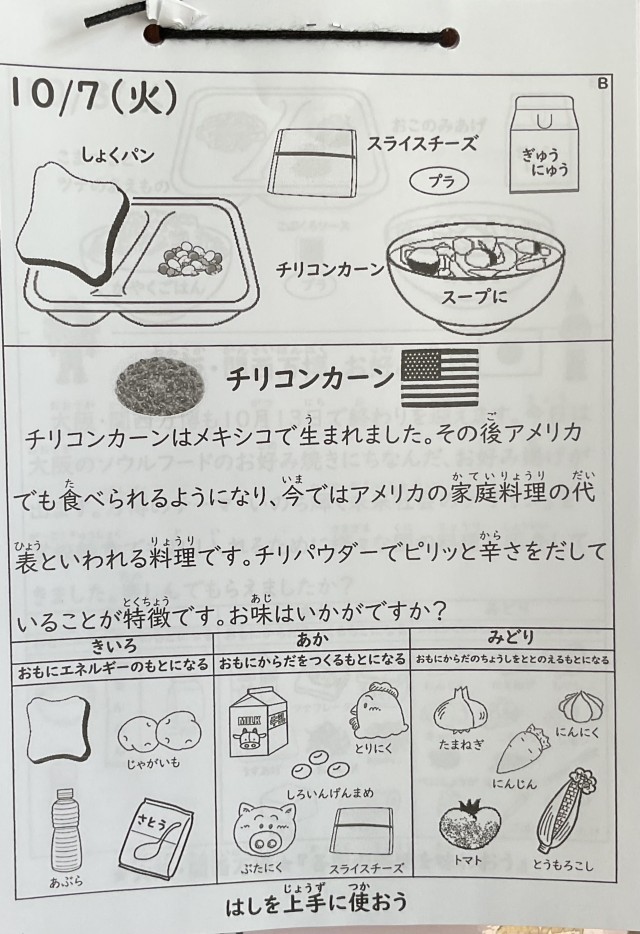 10/7(火)
B
しょくパン
スライスチーズ
プラ
ぎゅう
にゅう
チリコンカーン
スープに
チリコンカーン
チリコンカーンはメキシコで生まれました。その後アメリカ
でも食べられるようになり、今ではアメリカの家庭料理の代
表といわれる料理です。チリパウダーでピリッと辛さをだして
いることが特徴です。お味はいかがですか?
きいろ
おもにエネルギーのもとになる
じゃがいも
さとう
あぶら
あか
おもにからだをつくるもとになる
MILK
とりにく
しろいんげんまめ
ぶたにく
スライスチーズ
みどり
おもにからだのちょうしをととのえるもとになる
たまねぎ
にんにく
にんじん
トマト
とうもろこし
はしを上手に使おう